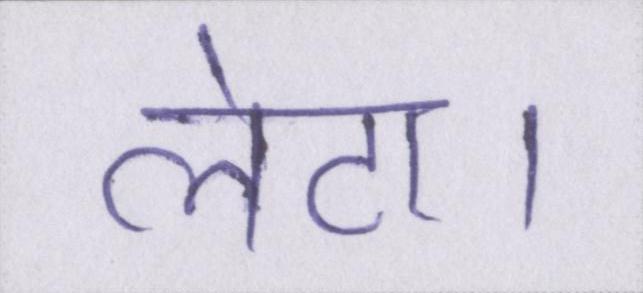 लेटा।